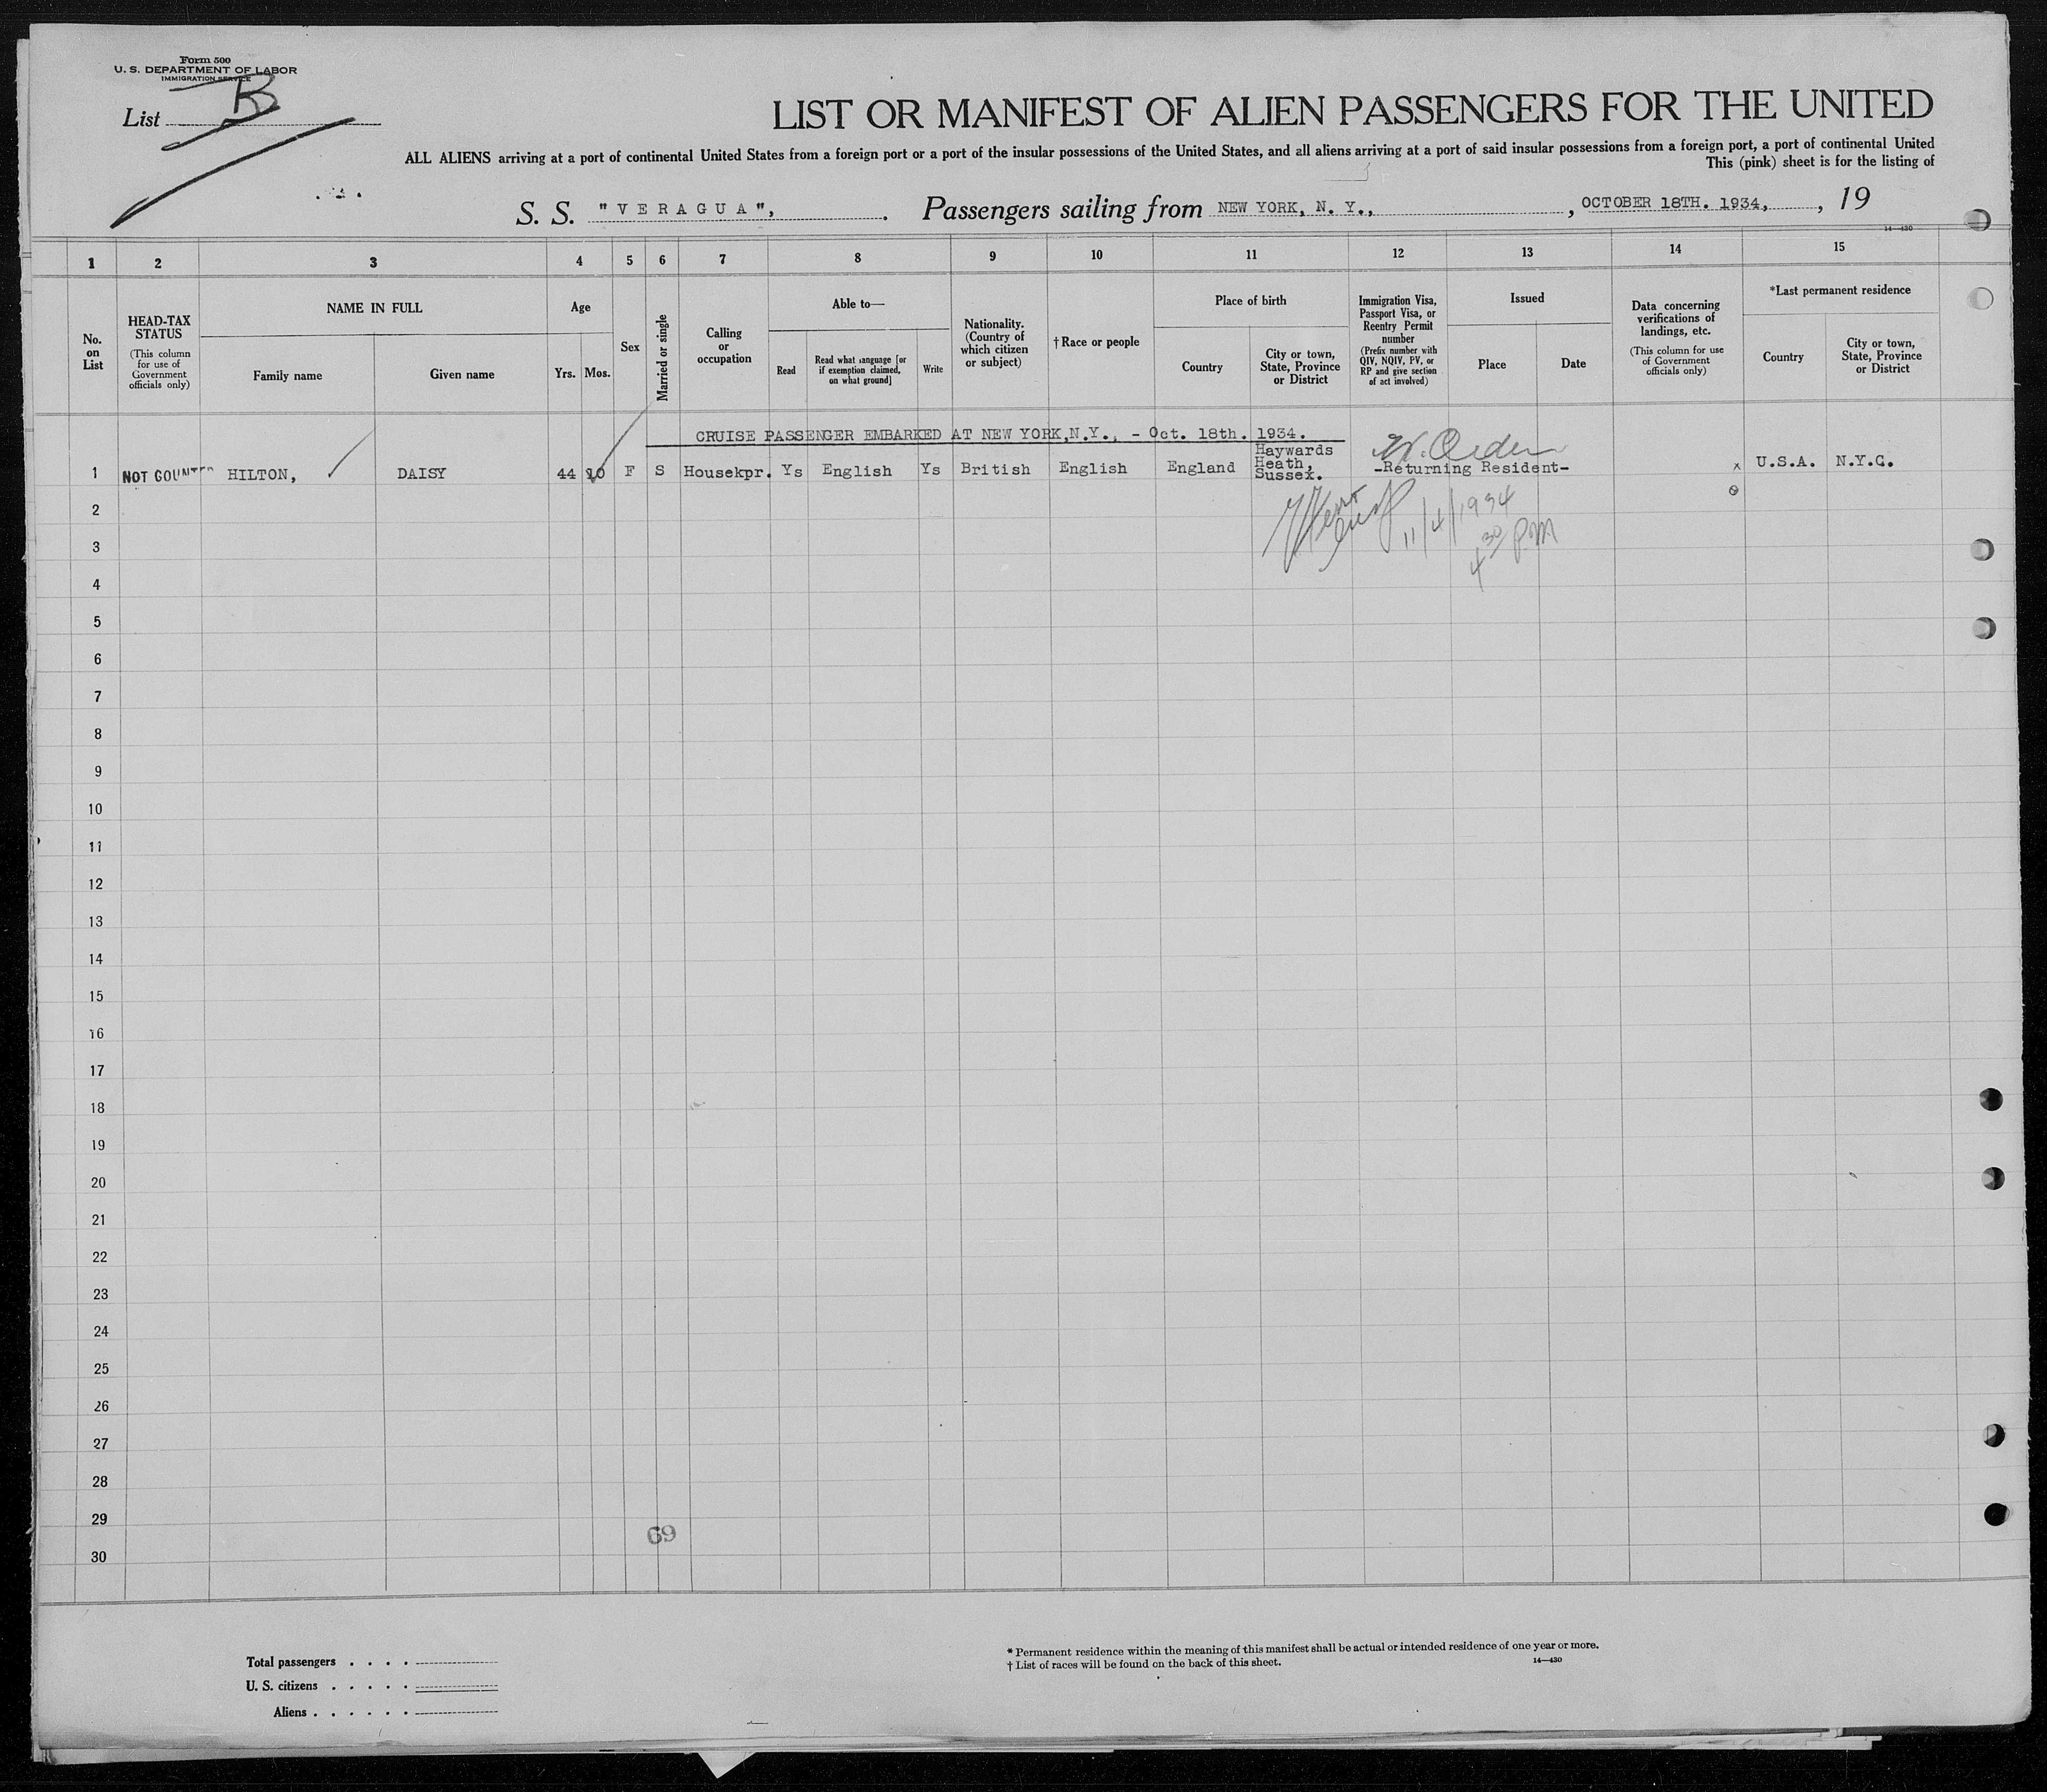 Form 500
U. S. DEPARTMENT OF LABOR
IMMIGRATION SERVICE
List B
LIST OR MANIFEST OF ALIEN PASSENGERS FOR THE UNITED
ALL ALIENS arriving at a port of continental United States from a foreign port or a port of the insular possessions of the United States, and all aliens arriving at a port of said insular possessions from a foreign port, a port of continental United
This (pink) sheet is for the listing of
S. S. "VERAGUA", . Passengers sailing from NEW YORK, N. Y., , OCTOBER 18TH. 1934, , 19
14—430
1 2 3 4 5 6 7 8 9 10 11 12 13 14 15
No. on List
HEAD-TAX STATUS
(This column for use of Government officials only)
NAME IN FULL
Family name
Given name
Age
Yrs. Mos.
Sex
Married or single
Calling or occupation
Able to—
Read
Read what language [or if exemption claimed, on what ground]
Write
Nationality. (Country of which citizen or subject)
†Race or people
Place of birth
Country
City or town, State, Province or District
Immigration Visa, Passport Visa, or Reentry Permit number
(Prefix number with QIV, NQIV, PV, or RP and give section of act involved)
Issued
Place
Date
Data concerning verifications of landings, etc.
(This column for use of Government officials only)
*Last permanent residence
Country
City or town, State, Province or District
CRUISE PASSENGER EMBARKED AT NEW YORK,N.Y., - Oct. 18th. 1934.
1 NOT COUNTED HILTON, DAISY 44 10 F S Housekpr. Ys English Ys British English England Haywards Heath, Sussex. -Returning Resident- x U.S.A. N.Y.C.
11/4/1934
4 30 PM
2
3
4
5
6
7
8
9
10
11
12
13
14
15
16
17
18
19
20
21
22
23
24
25
26
27
28
29
69
30
Total passengers . . . .
U. S. citizens . . . . .
Aliens . . . . . .
* Permanent residence within the meaning of this manifest shall be actual or intended residence of one year or more.
† List of races will be found on the back of this sheet.
14—430